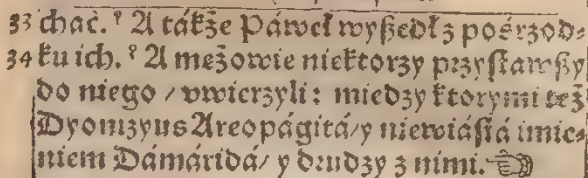 33 chać. ˀ A tákże Páweł wyßedł z pośrzod⸗
34 ku ich. ˀ A mężowie niektorzy przystawßy
do niego / vwierzyli: miedzy ktorymi też
Dyonizyus Areopágitá/ y niewiástá imie⸗
niem Dámáridá/ y drudzy z nimi. ☜